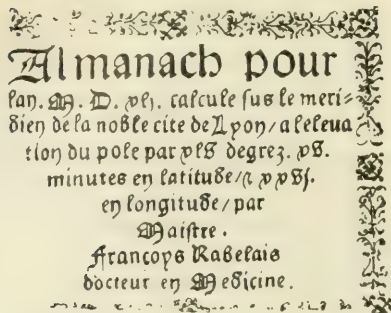 Almanach pour
lan. M. D. xlj. calcule sus le meri=
dien de la noble cite de Lyon/ a leleua
tion du pole par xlv degrez. xv.
minutes en latitude/⁊ xxvj.
en longitude/ par
Maistre.
Françoys Rabelais
docteur en Medicine.